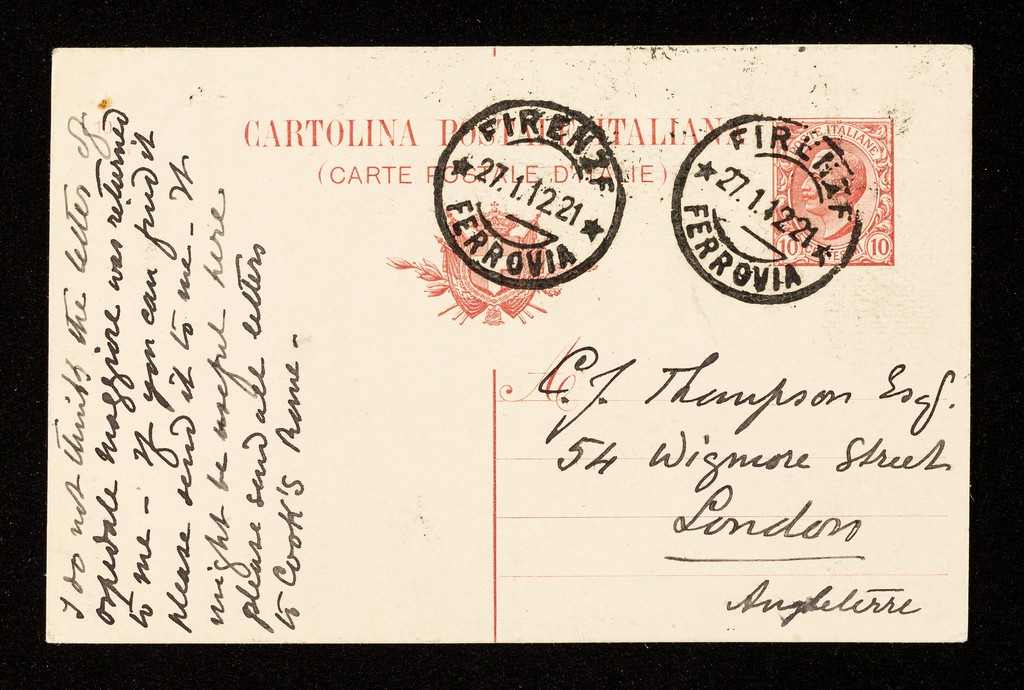 CARTOLINA POSTALE ITALIANA
(CARTE POSTALE D'ITALIE)
FIRENZE
27.1.12.21
FERROVIA
FIRENZE
27.1.12.21
FERROVIA
POSTE ITALIANE
10 10
I do not think the letter of
ospedale maggiore was returned
to me - If you can find it
please send it to me - It
might be useful here
please send all letters
to Cook's Rome -
A
C.J. Thompson Esq.
54 Wigmore Street
London
Angleterre